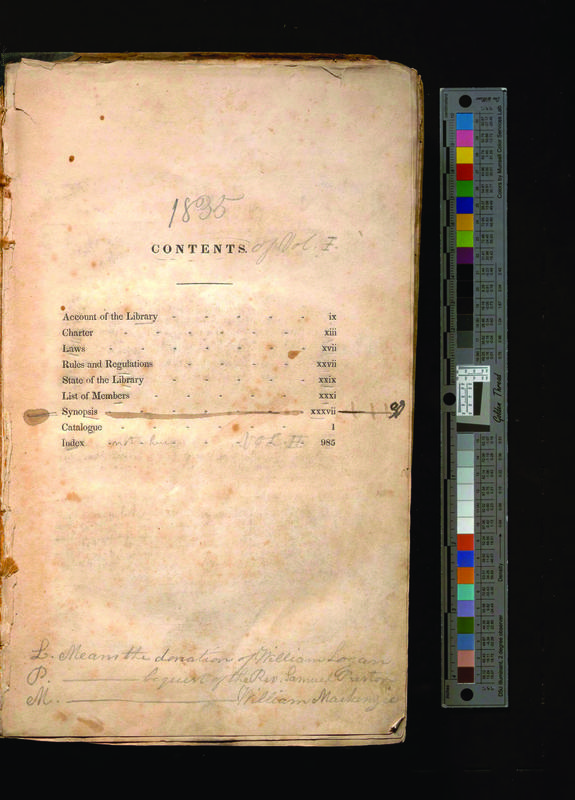 1835
CONTENTS. of Vol. I.
Account of the Library - - - - - ix
Charter - - - - - - - xiii
Laws - - - - - - - xvii
Rules and Regulations - - - - - xxvii
State of the Library - - - - - xxix
List of Members - - - - - - xxxi
Synopsis - - - - - - - xxxvii
Catalogue - - - - - - - 1
Index - not here - Vol. II - 985
L. Means the donation of William Logan
P. ——— bequest of the Rev. Samuel Preston
M. ——— William Mackenzie
Golden Thread